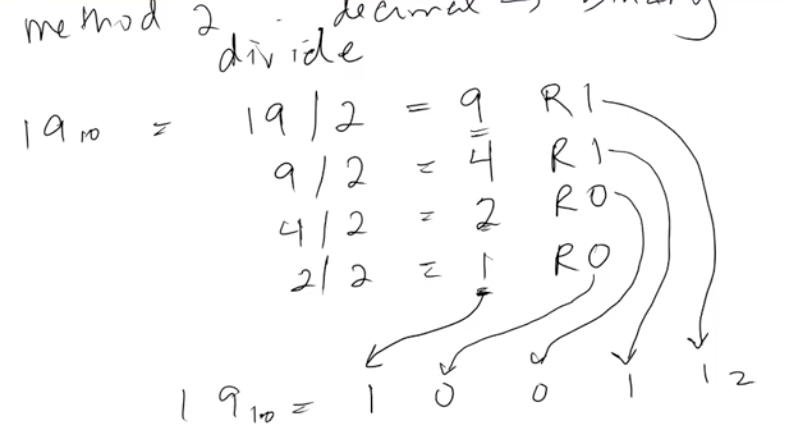 method 2 decimal → binary
divide
19₁₀ = 19/2 = 9 R1
9/2 = 4 R1
4/2 = 2 R0
2/2 = 1 R0
19₁₀ = 1 0 0 1 1 ₂